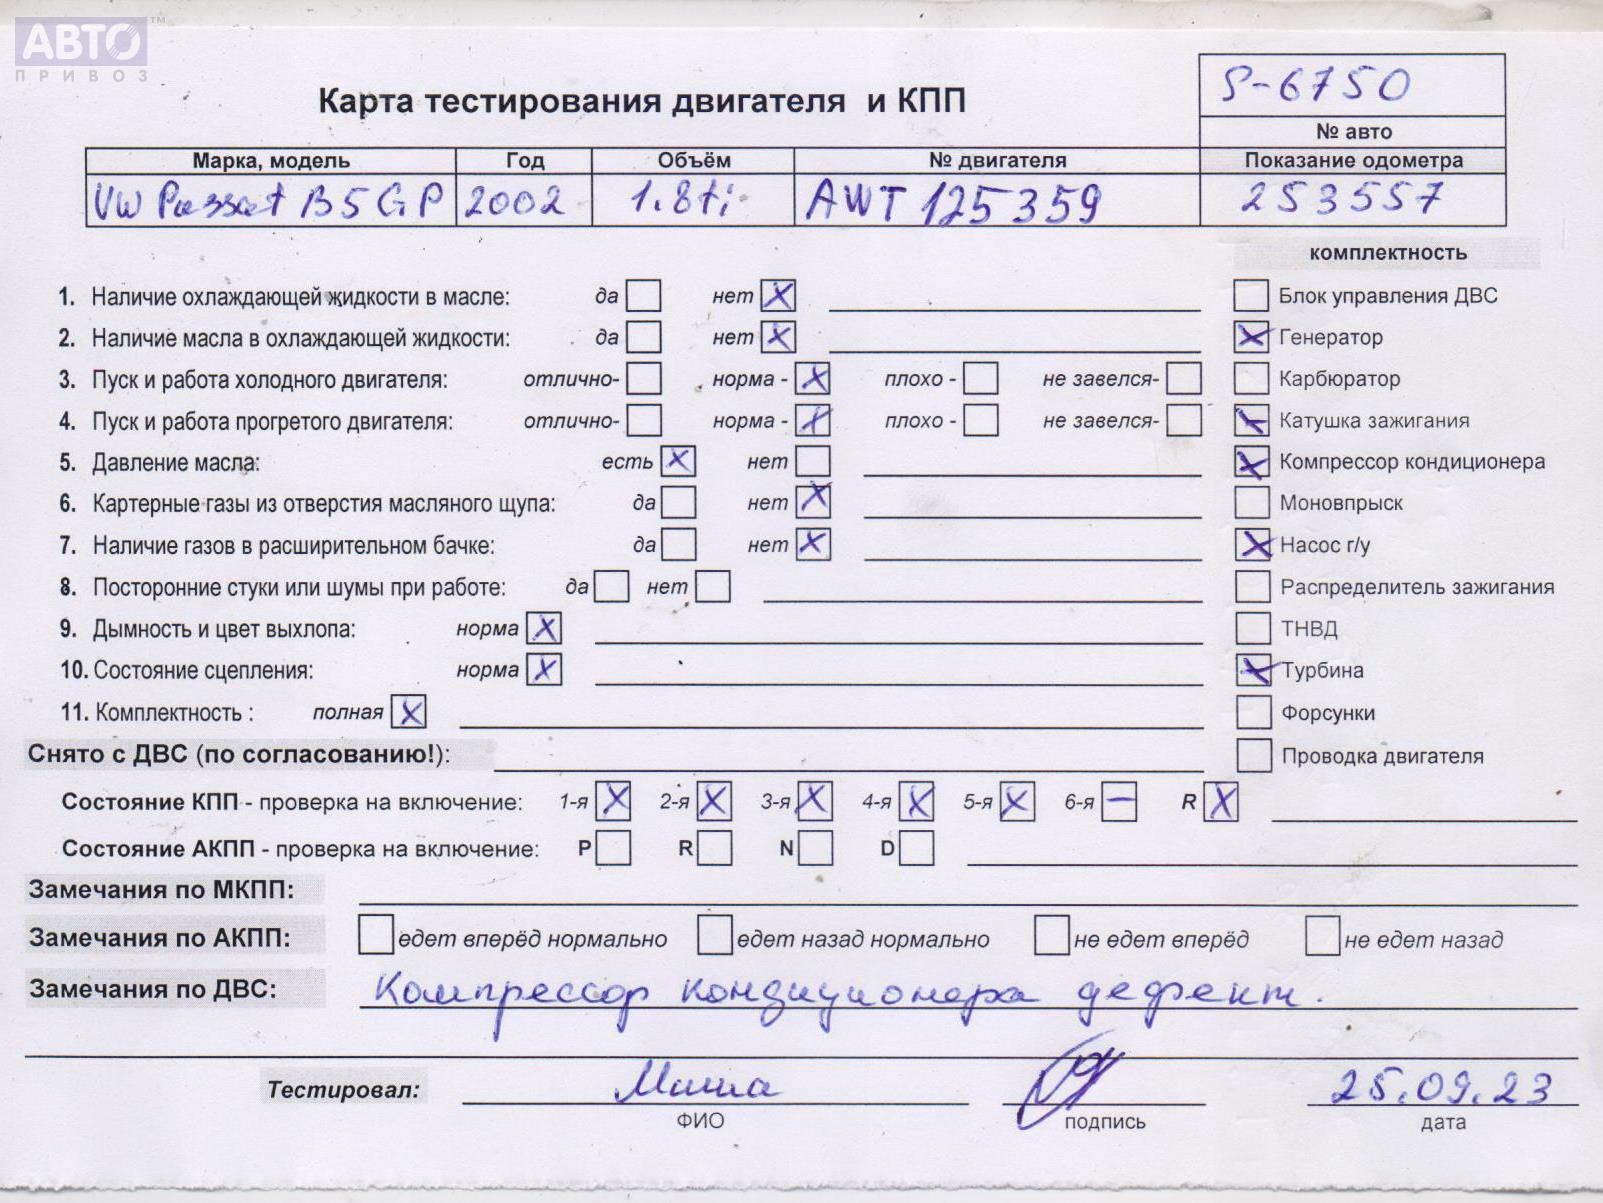 АВТО™
ПРИВОЗ
S-6750
Карта тестирования двигателя и КПП
№ авто
Марка, модель Год Объём № двигателя Показание одометра
VW Passat B5 GP 2002 1.8ti AWT 125359 253557
комплектность
1. Наличие охлаждающей жидкости в масле: да нет X Блок управления ДВС
2. Наличие масла в охлаждающей жидкости: да нет X X Генератор
3. Пуск и работа холодного двигателя: отлично- норма - X плохо - не завелся- Карбюратор
4. Пуск и работа прогретого двигателя: отлично- норма - X плохо - не завелся- X Катушка зажигания
5. Давление масла: есть X нет X Компрессор кондиционера
6. Картерные газы из отверстия масляного щупа: да нет X Моновпрыск
7. Наличие газов в расширительном бачке: да нет X X Насос г/у
8. Посторонние стуки или шумы при работе: да нет Распределитель зажигания
9. Дымность и цвет выхлопа: норма X ТНВД
10. Состояние сцепления: норма X X Турбина
11. Комплектность : полная X Форсунки
Снято с ДВС (по согласованию!): Проводка двигателя
Состояние КПП - проверка на включение: 1-я X 2-я X 3-я X 4-я X 5-я X 6-я — R X
Состояние АКПП - проверка на включение: P R N D
Замечания по МКПП:
Замечания по АКПП: едет вперёд нормально едет назад нормально не едет вперёд не едет назад
Замечания по ДВС: Компрессор кондиционера дефект.
Тестировал: Миша 25.09.23
ФИО подпись дата